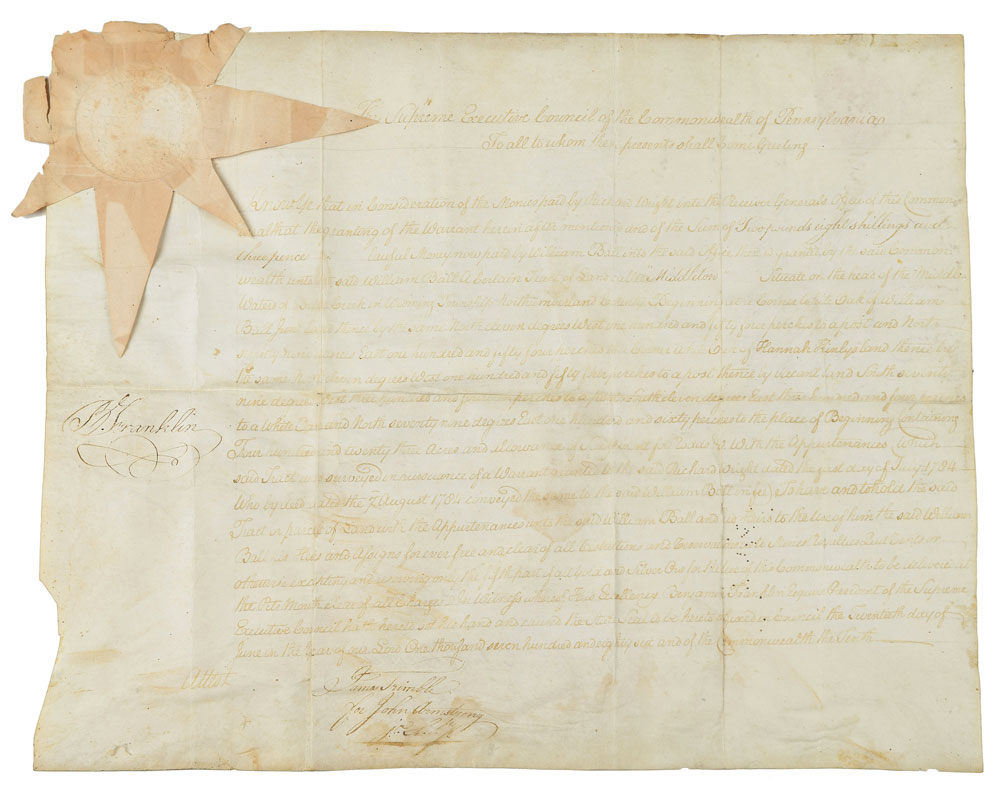 The Supreme Executive Council of the Commonwealth of Pennsylvania
To all to whom these presents shall Come Greeting
Know Ye that in Consideration of the Monies paid by Richard Wright into the Receiver General's Office of this Common
wealth at the granting of the Warrant herein after mentioned and of the Sum of Two pounds eight shillings and
three pence lawful Money now paid by William Ball into the said Office there is granted by the said Common
wealth unto the said William Ball A Certain Tract of Land Called "Middleton" Situate on the head of the Middle
Waters of Creek in Township Northumberland County Beginning at a Corner White Oak of William
Ball land thence by the same North eleven degrees West one hundred and fifty four perches to a post and North
seventy nine degrees East one hundred and fifty four perches to a corner White Oak of Hannah land thence by
the same North eleven degrees West one hundred and fifty perches to a post thence by vacant land South seventy
nine degrees West three hundred and perches to a post South eleven degrees East three hundred and four perches
to a White Oak and North seventy nine degrees East one hundred and sixty perches to the place of Beginning Containing
Four hundred and twenty three Acres and allowance of for Roads &c With the Appurtenances Which
said Tract was surveyed in pursuance of a Warrant granted to the said Richard Wright dated the first day of July 1784
Who by deed dated the 7 August 1784 conveyed the same to the said William Ball in fee) To have and to hold the said
Tract or parcel of Land with the Appurtenances unto the said William Ball and his Heirs to the Use of him the said William
Ball his Heirs and Assigns for ever free and clear of all Restrictions and Reservations as to Mines Royalties Quit Rents or
otherwise excepting and reserving only the fifth part of all Gold and Silver Ore for the Use of this Commonwealth to be delivered at
the Pits Mouth clear of all Charges In Witness whereof His Excellency Benjamin Franklin Esquire President of the Supreme
Executive Council hath hereto set his hand and caused the State Seal to be hereto affixed in Council the Twentieth day of
June in the Year of our Lord One thousand seven hundred and eighty six and of the Commonwealth the Tenth
B. Franklin
Attest
James Trimble
for John Armstrong